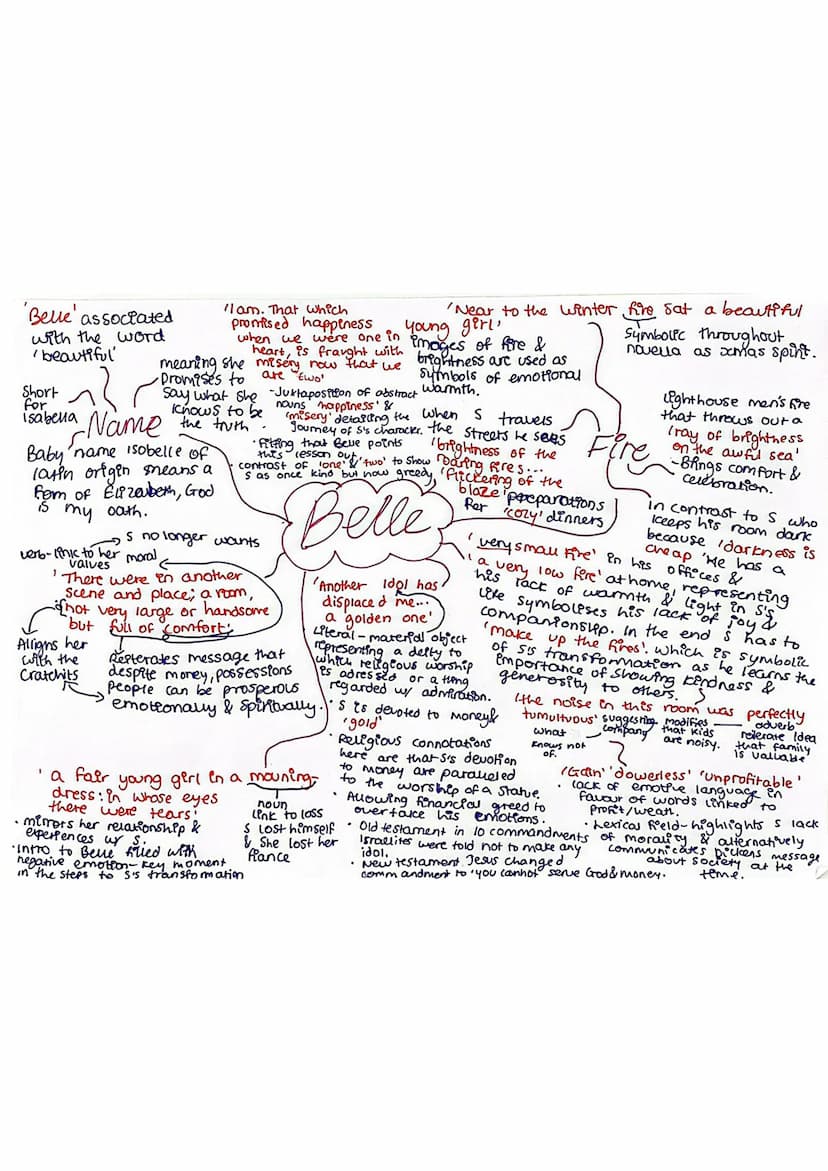 'Belle' associated
with the word
'beautiful'
Short
for
Isabella
Name
meaning she
promises to
say what she
knows to be
the truth.
Baby name isobelle of
latin origin means a
form of Elizabeth, God
is my oath.
'I am. That which
promised happiness
when we were one in
heart, is fraught with
misery now that we
are 'two'
- Juxtaposition of abstract
nouns 'happiness' &
'misery' detailing the
journey of S's character.
· fitting that Belle points
this lesson out,
· contrast of 'one' & 'two' to show
S as once kind but now greedy.
'Near to the winter fire sat a beautiful
young girl'
images of fire &
brightness are used as
symbols of emotional
warmth.
Symbolic throughout
novella as xmas spirit.
When S travels
the streets he sees
'brightness of the
roaring fires...
'flickering of the
blaze' preparations
for 'cozy' dinners
Fire
lighthouse men's fire
that throws out a
'ray of brightness
on the awful sea'
- Brings comfort &
celebration.
In contrast to S who
keeps his room dark
because 'darkness is
cheap' He has a
'very small fire' in his offices &
'a very low fire' at home, representing
his lack of warmth & light in S's
life symbolises his lack of joy &
companionship. In the end S has to
'make up the fires'. which is symbolic
of S's transformation as he learns the
importance of showing kindness &
generosity to others.
Belle
S no longer wants
verb-link to her moral
values
'There were in another
scene and place; a room,
not very large or handsome
but full of comfort'
Aligns her
with the
Cratchits
Reiterates message that
despite money, possessions
people can be prosperous
emotionally & spiritually.
'Another idol has
displaced me...
a golden one'
Literal - material object
representing a deity to
which religious worship
is adressed or a thing
regarded w/ admiration.
· S is devoted to money &
'gold'
· Religious connotations
here are that S's devotion
to money are paralleled
to the worship of a statue.
· Allowing financial greed to
overtake his emotions.
· Old testament in 10 commandments
Israelites were told not to make any
idol.
· New testament Jesus changed
commandment to 'you cannot serve God & money.
'the noise in this room was perfectly
tumultuous'
suggesting
company
what
S knows not
of.
modifies
that kids
are noisy.
adverb
reiterate idea
that family
is valuable
'Gain' 'dowerless' 'unprofitable'
· lack of emotive language in
favour of words linked to
profit/wealth.
· Lexical field - highlights S lack
of morality & alternatively
communicates Dickens message
about society at the
time.
'a fair young girl in a mourning-
dress: in whose eyes
there were tears'
noun
link to loss
S lost himself
& she lost her
fiance
· mirrors her relationship &
experiences w/ S.
· Intro to Belle filled with
negative emotion - key moment
in the steps to S's transformation